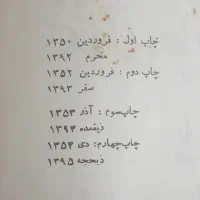 چاپ اول : فروردین ۱۳۵۰
محرم ۱۳۹۲
چاپ دوم : فروردین ۱۳۵۲
صفر ۱۳۹۳
چاپ سوم : آذر ۱۳۵۳
ذیقعده ۱۳۹۴
چاپ چهارم : دی ۱۳۵۴
ذیحجه ۱۳۹۵